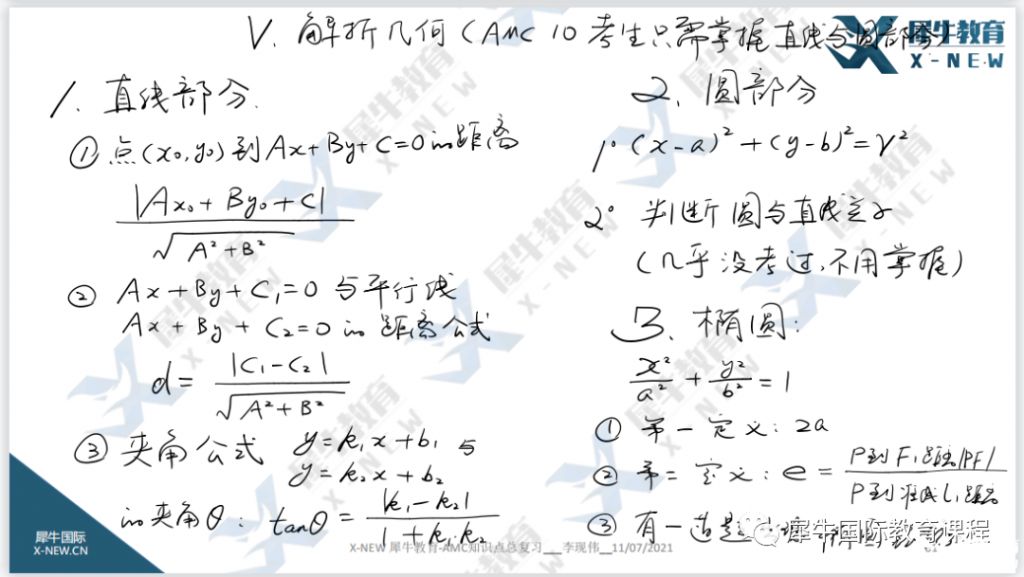 V. 解析几何 (AMC 10 考生只需掌握直线与圆部分)
犀牛教育
X-NEW
1. 直线部分.
① 点(x₀,y₀)到Ax+By+C=0的距离
|Ax₀+By₀+C|
√A²+B²
② Ax+By+C₁=0 与平行线
Ax+By+C₂=0 的距离公式
d= |C₁-C₂|
√A²+B²
③ 夹角公式 y=k₁x+b₁ 与
y=k₂x+b₂
的夹角θ: tanθ = |k₁-k₂|
1+k₁k₂
2. 圆部分
1° (x-a)²+(y-b)²=r²
2° 判断圆与直线
(几乎没考过,不用掌握)
3. 椭圆:
x²/a² + y²/b² = 1
① 第一定义: 2a
② 第二定义: e = P到F₁距离|PF|
P到准线l₁距离
③ 有一道题
犀牛国际教育课程
犀牛国际
X-NEW.CN
X-NEW 犀牛教育-AMC知识点总复习__李现伟__11/07/2021